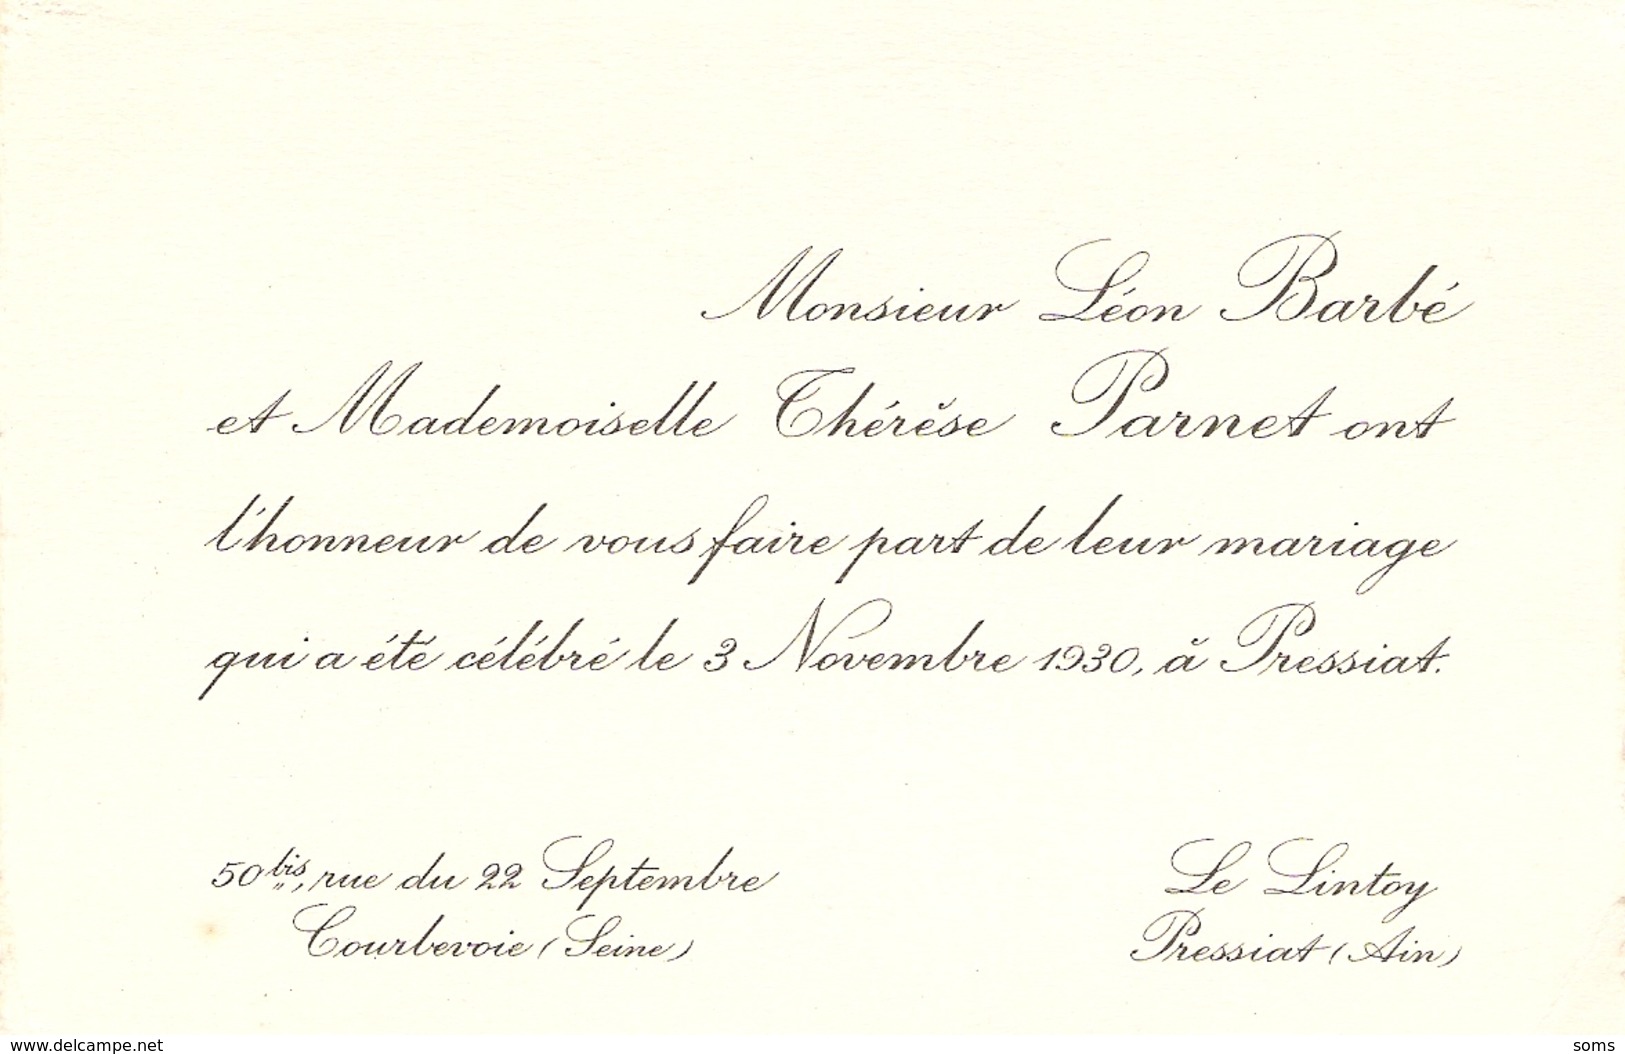 Monsieur Léon Barbé
et Mademoiselle Thérèse Parnet ont
l'honneur de vous faire part de leur mariage
qui a été célébré le 3 Novembre 1930, à Pressiat.
50 bis, rue du 22 Septembre
Courbevoie (Seine)
Le Lintoy
Pressiat (Ain)
www.delcampe.net
soms